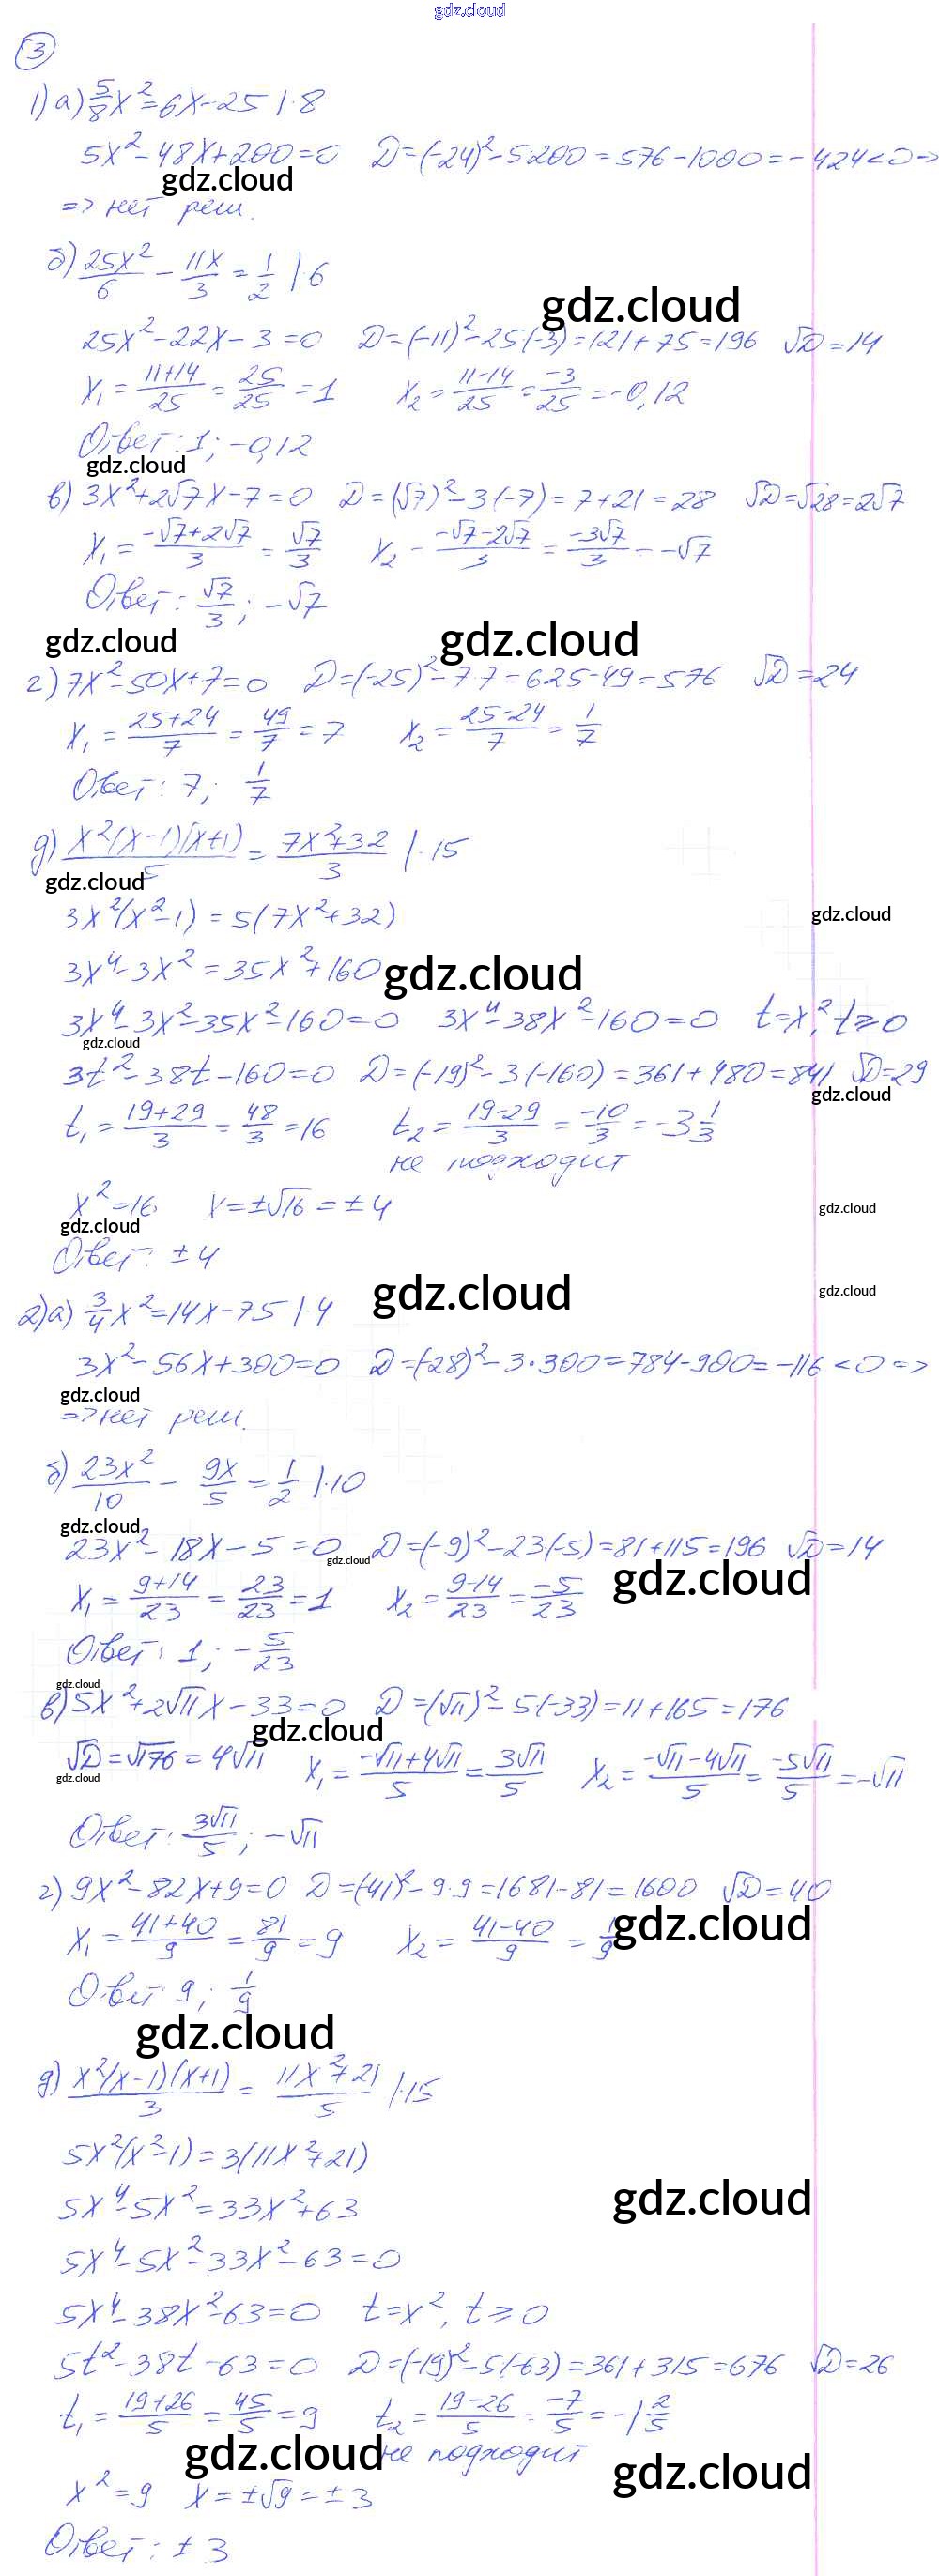 gdz.cloud
3
1) а) 5/8 x² = 6x - 25 | · 8
5x² - 48x + 200 = 0 D = (-24)² - 5·200 = 576 - 1000 = -424 < 0 =>
gdz.cloud
=> нет реш.
б) 25x²/6 - 11x/3 = 1/2 | · 6
gdz.cloud
25x² - 22x - 3 = 0 D = (-11)² - 25(-3) = 121 + 75 = 196 √D = 14
x₁ = (11+14)/25 = 25/25 = 1 x₂ = (11-14)/25 = -3/25 = -0,12
Ответ: 1; -0,12
gdz.cloud
в) 3x² + 2√7x - 7 = 0 D = (√7)² - 3(-7) = 7 + 21 = 28 √D = √28 = 2√7
x₁ = (-√7+2√7)/3 = √7/3 x₂ - (-√7-2√7)/3 = -3√7/3 = -√7
Ответ: √7/3; -√7
gdz.cloud gdz.cloud
г) 7x² - 50x + 7 = 0 D = (-25)² - 7·7 = 625 - 49 = 576 √D = 24
x₁ = (25+24)/7 = 49/7 = 7 x₂ = (25-24)/7 = 1/7
Ответ: 7; 1/7
д) x²(x-1)(x+1)/5 = (7x²+32)/3 | · 15
gdz.cloud
3x²(x²-1) = 5(7x²+32)
gdz.cloud
3x⁴ - 3x² = 35x² + 160
gdz.cloud
3x⁴ - 3x² - 35x² - 160 = 0 3x⁴ - 38x² - 160 = 0 t = x², t ≥ 0
gdz.cloud
3t² - 38t - 160 = 0 D = (-19)² - 3(-160) = 361 + 480 = 841 √D = 29
gdz.cloud
t₁ = (19+29)/3 = 48/3 = 16 t₂ = (19-29)/3 = -10/3 = -3 1/3
не подходит
x² = 16 x = ±√16 = ±4
gdz.cloud
gdz.cloud
Ответ: ±4
gdz.cloud
gdz.cloud
2) а) 3/4 x² = 14x - 75 | · 4
3x² - 56x + 300 = 0 D = (-28)² - 3·300 = 784 - 900 = -116 < 0 =>
gdz.cloud
=> нет реш.
б) 23x²/10 - 9x/5 = 1/2 | · 10
gdz.cloud
23x² - 18x - 5 = 0 D = (-9)² - 23(-5) = 81 + 115 = 196 √D = 14
gdz.cloud gdz.cloud
x₁ = (9+14)/23 = 23/23 = 1 x₂ = (9-14)/23 = -5/23
Ответ: 1; -5/23
gdz.cloud
в) 5x² + 2√11x - 33 = 0 D = (√11)² - 5(-33) = 11 + 165 = 176
gdz.cloud
√D = √176 = 4√11 x₁ = (-√11+4√11)/5 = 3√11/5 x₂ = (-√11-4√11)/5 = -5√11/5 = -√11
gdz.cloud
Ответ: 3√11/5; -√11
г) 9x² - 82x + 9 = 0 D = (-41)² - 9·9 = 1681 - 81 = 1600 √D = 40
gdz.cloud
x₁ = (41+40)/9 = 81/9 = 9 x₂ = (41-40)/9 = 1/9
Ответ 9; 1/9
gdz.cloud
д) x²(x-1)(x+1)/3 = (11x²+21)/5 | · 15
5x²(x²-1) = 3(11x²+21)
gdz.cloud
5x⁴ - 5x² = 33x² + 63
5x⁴ - 5x² - 33x² - 63 = 0
5x⁴ - 38x² - 63 = 0 t = x², t ≥ 0
5t² - 38t - 63 = 0 D = (-19)² - 5(-63) = 361 + 315 = 676 √D = 26
t₁ = (19+26)/5 = 45/5 = 9 t₂ = (19-26)/5 = -7/5 = -1 2/5
gdz.cloud не подходит
gdz.cloud
x² = 9 x = ±√9 = ±3
Ответ: ±3